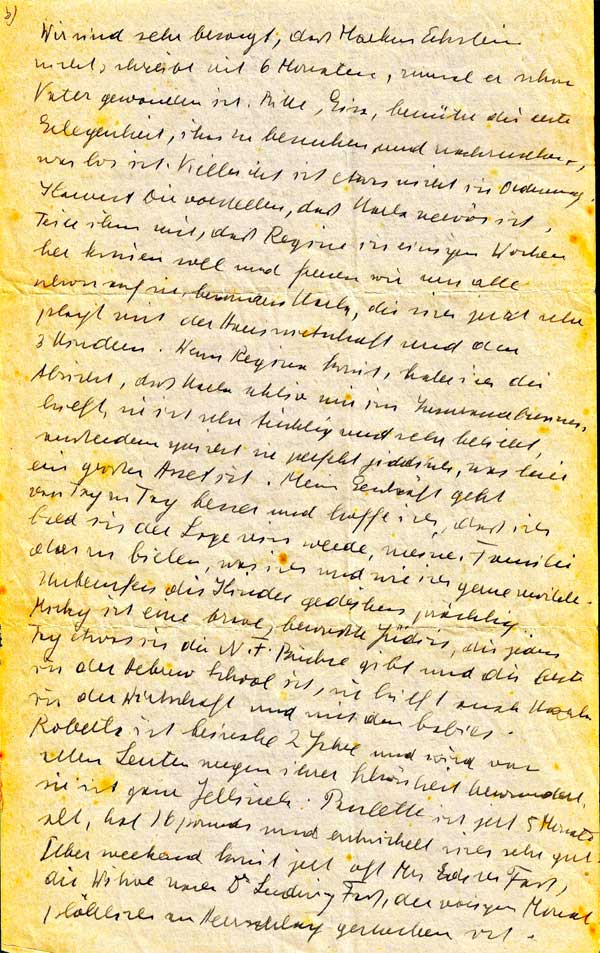 b)
Wir sind sehr besorgt, dass Markus Eckstein
nicht schreibt seit 6 Monaten, zumal er schon
Vater geworden ist. Bitte, benütze die erste
Gelegenheit, ihn zu besuchen und nachzusehen,
was los ist. Vielleicht ist etwas nicht in Ordnung.
Kannst Du vorstellen, dass Karla nervös ist.
Teile ihm mit, dass Regine in einigen Wochen
her kommen soll und freuen wir uns alle
schon auf sie, besonders Karla, die sich jetzt sehr
plagt mit der Hauswirtschaft und den
3 Kindern. Wenn Regina kommt, habe ich die
Absicht, dass Karla mir im
hilft, sie ist sehr tüchtig und sehr beliebt,
ausserdem spricht sie perfekt jiddisch, was hier
ein grosser Asset ist. Mein Geschäft geht
von Tag zu Tag besser und hoffe ich, dass ich
bald in der Lage sein werde, meiner Familie
das zu bieten, was ich und wie ich gerne möchte.
Unberufen die Kinder gedeihen prächtig.
ist eine brave, bewusste Jüdin, die jeden
Tag etwas in die N.F. Büchse gibt und die beste
in der Hebrew School ist, sie hilft auch Karla
in der Wirtschaft und mit den babies.
Roberta ist beinahe 2 Jahre und wird von
allen Leuten wegen ihrer Schönheit bewundert,
sie ist ganz Jellinek. Paulette ist jetzt 5 Monate
alt, hat 16 pounds und entwickelt sich sehr gut.
Über weekend kommt jetzt oft Mrs Fast,
die Witwe nach Dr Ludwig Fast, der vorigen Monat
plötzlich an Herzschlag gestorben ist.